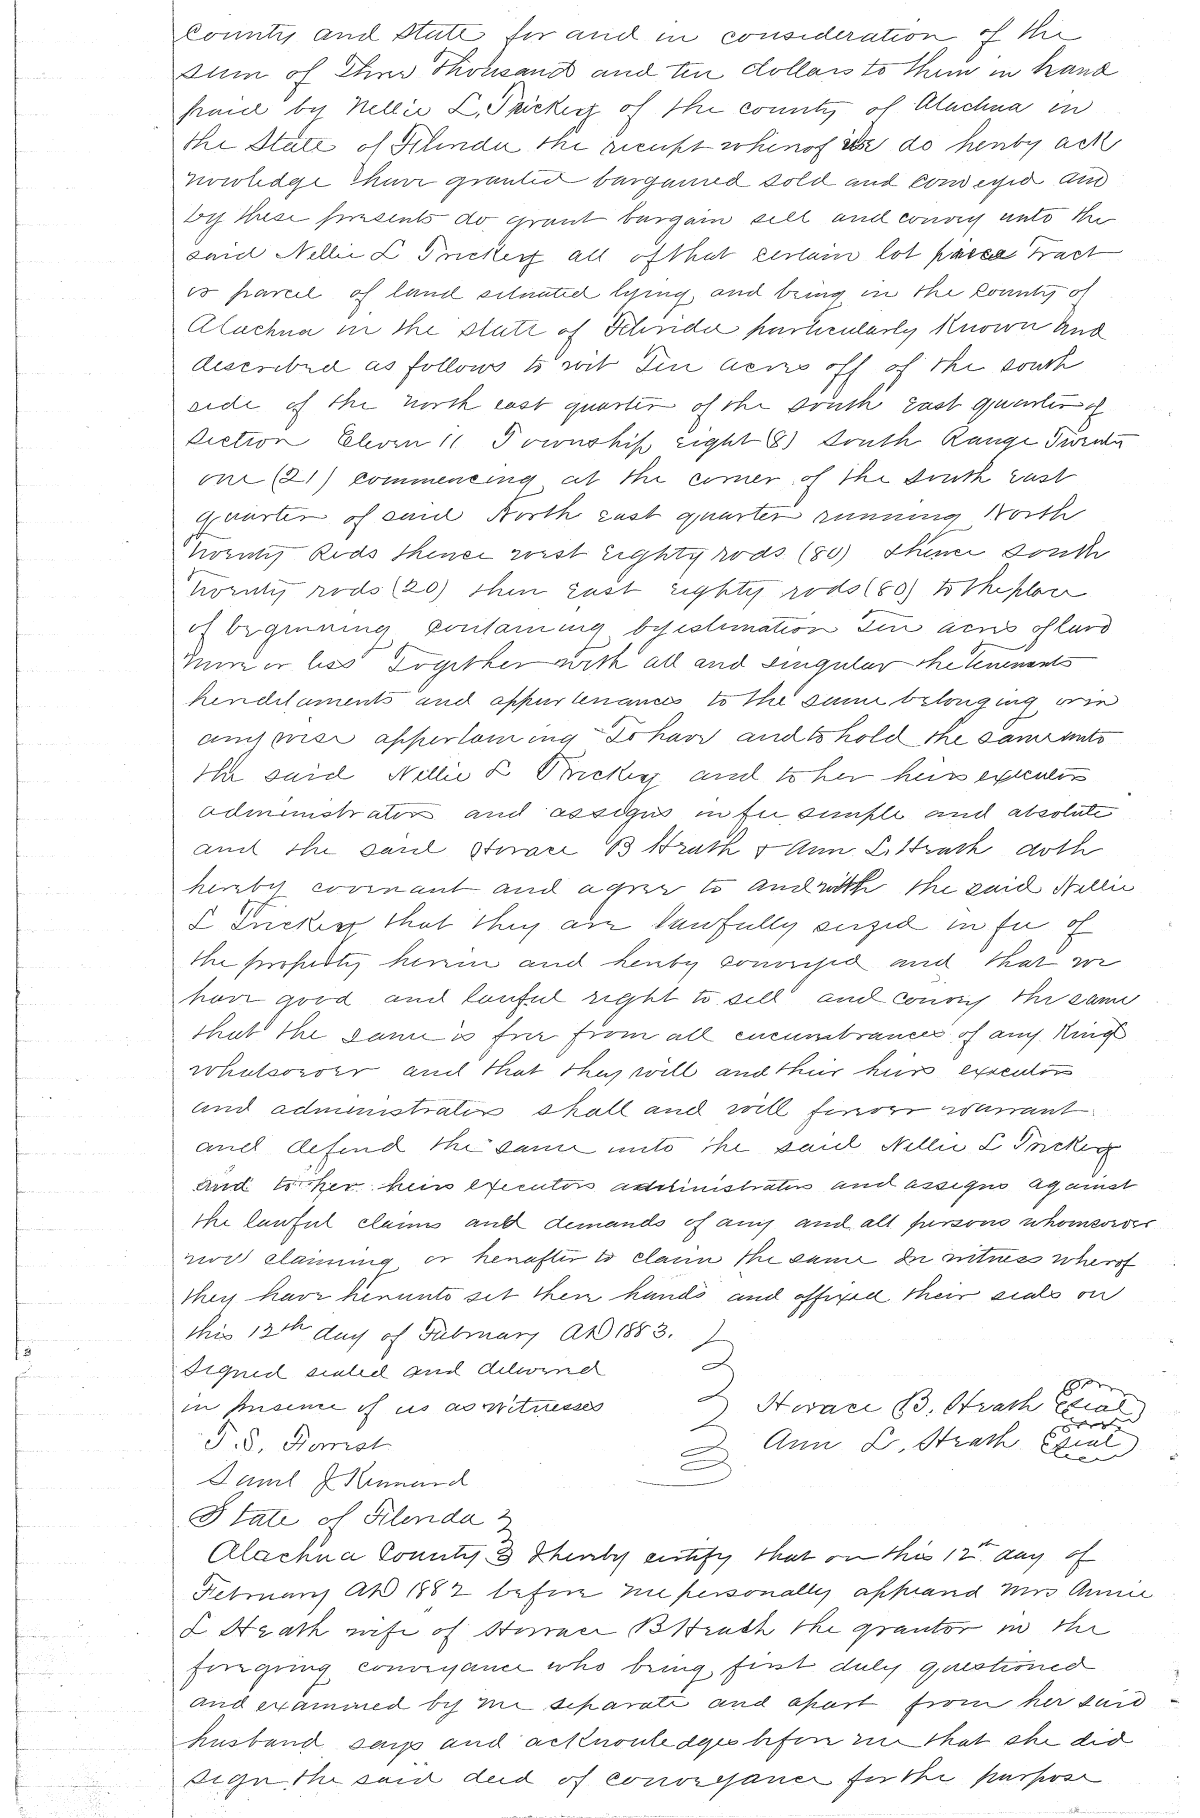 County and State for and in consideration of the
sum of Three Thousand and ten dollars to them in hand
paid by Nellie L. Trickey of the county of Alachua in
the State of Florida the receipt whereof we do hereby ack
nowledge have granted bargained sold and conveyed and
by these presents do grant bargain sell and convey unto the
said Nellie L Trickey all of that certain lot piece tract
or parcel of land situated lying and being in the County of
Alachua in the state of Florida particularly Known and
described as follows to wit Ten acres off of the south
side of the north east quarter of the south east quarter of
Section Eleven 11 Township eight (8) South Range Twenty
one (21) commencing at the corner of the South east
quarter of said North east quarter running North
twenty Rods thence west Eighty rods (80) thence south
twenty rods (20) then east eighty rods (80) to the place
of beginning containing by estimation Ten acres of land
more or less Together with all and singular the tenements
hereditaments and appurtenances to the same belonging or in
any wise appertaining To have and to hold the same unto
the said Nellie L Trickey and to her heirs executors
administrators and assigns in fee simple and absolute
and the said Horace B Strath & Ann L. Strath doth
hereby covenant and agree to and with the said Nellie
L Trickey that they are lawfully seized in fee of
the property herein and hereby conveyed and that we
have good and lawful right to sell and convey the same
that the same is free from all encumbrances of any Kind
whatsoever and that they will and their heirs executors
and administrators shall and will forever warrant
and defend the same unto the said Nellie L Trickey
and to her heirs executors administrators and assigns against
the lawful claims and demands of any and all persons whomsoever
now claiming or hereafter to claim the same In witness wherof
they have hereunto set there hands and affixed their seals on
this 12th day of February AD 1883.
Signed sealed and delivered
in presence of us as witnesses
Horace B. Strath Seal
T. S. Forrest
Ann L. Strath Seal
Saml J Kennard
State of Florida
Alachua County I hereby certify that on this 12th day of
February AD 1882 before me personally appeared Mrs Annie
L Strath wife of Horrace B Strath the grantor in the
foregoing conveyance who being first duly questioned
and examined by me separate and apart from her said
husband says and acknowledges before me that she did
sign the said deed of conveyance for the purpose